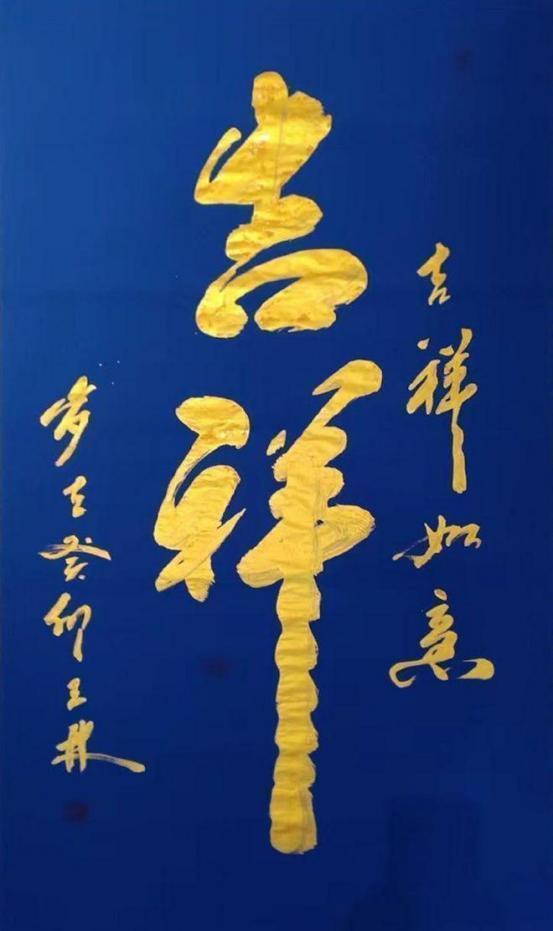 吉祥如意
吉祥
岁在癸卯王